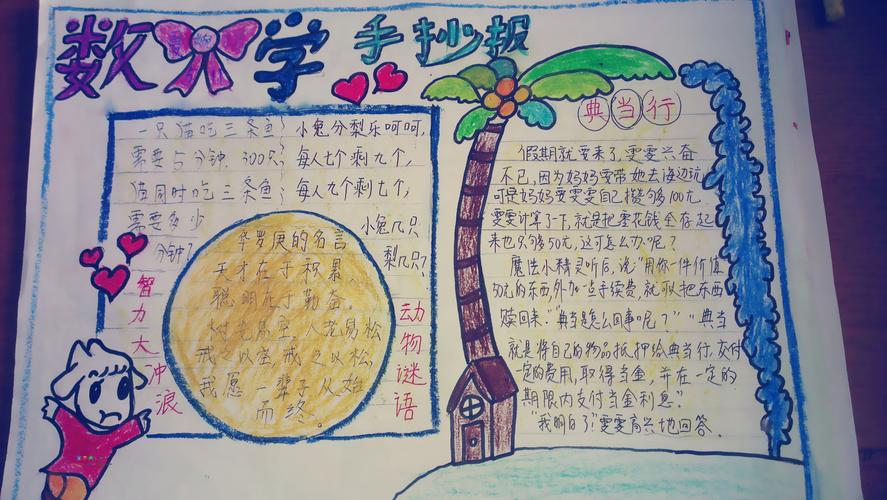 数学手抄报
一只猫吃三条鱼
需要5分钟,300只
猫同时吃三条鱼
需要多少
分钟?
智力大冲浪
小兔分梨乐呵呵,
每人七个剩九个,
每人九个剩七个,
小兔几只
梨几只?
动物谜语
华罗庚的名言
天才在于积累
聪明在于勤奋
树老易空,人老易松
戒之以空,戒之以松,
我愿一辈子从始
而终。
典当行
假期就要来了,雯雯兴奋
不已,因为妈妈要带她去海边玩
可是妈妈要雯雯自己攒够100元
雯雯计算了一下,就是把零花钱全存起
来也只够50元,这可怎么办呢?
魔法小精灵听后,说“用你一件价值
50元的东西,外加一些手续费,就可以把东西
赎回来.”“典当是怎么回事呢?”“典当
就是将自己的物品抵押给典当行,交付
一定的费用,取得当金,并在一定的
期限内支付当金利息”
“我明白了”雯雯高兴地回答.